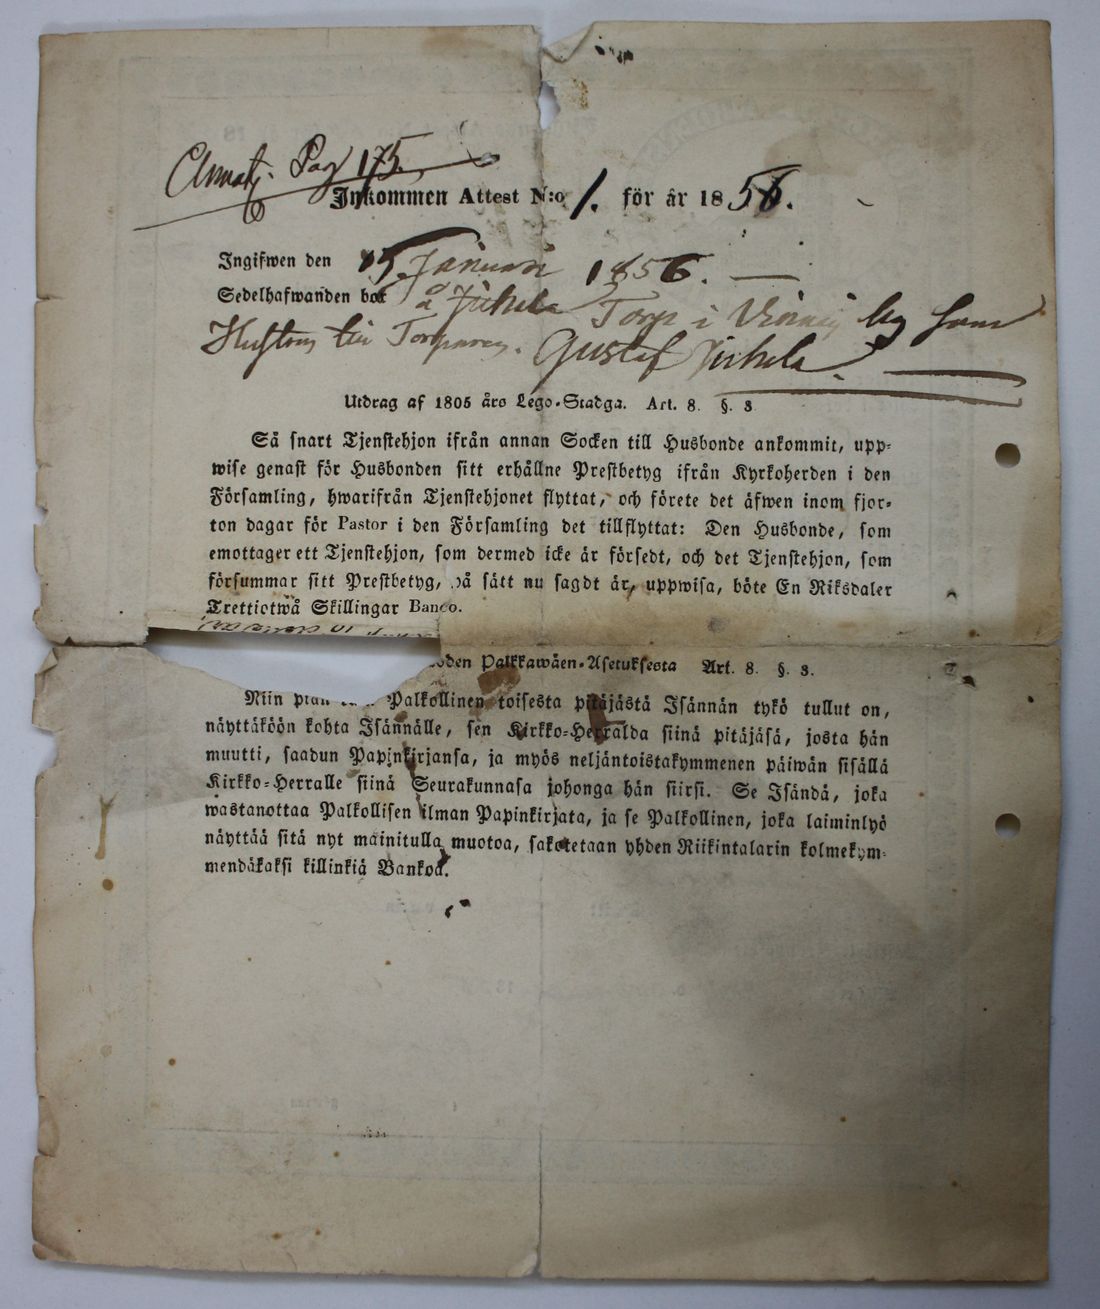 Pag 175.
Inkommen Attest N:o 1. för år 1856.
Ingifwen den 15 Januari 1856.
Sedelhafwanden bor å Jukela Torp i by som
Hustru till Torparen Gustaf Jukela.
Utdrag af 1805 års Lego-Stadga. Art. 8. §. 3
Så snart Tjenstehjon ifrån annan Socken till Husbonde ankommit, upp-
wise genast för Husbonden sitt erhållne Prestbetyg ifrån Kyrkoherden i den
Församling, hwarifrån Tjenstehjonet flyttat, och förete det äfwen inom fjor-
ton dagar för Pastor i den Församling det tillflyttat: Den Husbonde, som
emottager ett Tjenstehjon, som dermed icke är försedt, och det Tjenstehjon, som
försummar sitt Prestbetyg, på sätt nu sagdt är, uppwisa, böte En Riksdaler
Trettiotwå Skillingar Banco.
Palkkawäen-Asetuksesta Art. 8. §. 3.
Niin Palkollinen toisesta pitäjästä Isännän tykö tullut on,
näyttäköön kohta Isännälle, sen Kirkko-Herralda siinä pitäjäsä, josta hän
muutti, saadun Papinkirjansa, ja myös neljäntoistakymmenen päiwän sisällä
Kirkko-Herralle siinä Seurakunnasa johonga hän siirsi. Se Isändä, joka
wastanottaa Palkollisen ilman Papinkirjata, ja se Palkollinen, joka laiminlyö
näyttää sitä nyt mainitulla muotoa, sakotetaan yhden Riikintalarin kolmekym-
mendäkaksi killinkiä Bankoa.